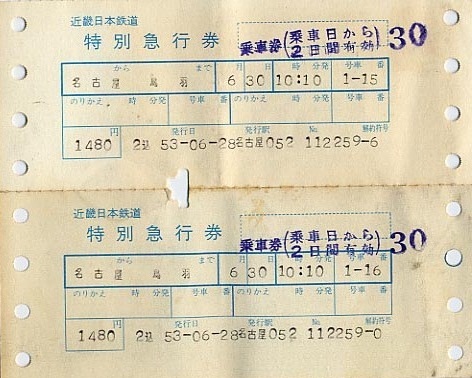 近畿日本鉄道
特別急行券
乗車券(乗車日から2日間有効) 30
から まで 月 日 時 分発 号車 番
名古屋 鳥羽 6 30 10:10 1-15
のりかえ 時 分発 号車 番 のりかえ 時 分発 号車 番
円 発行日 発行駅 No. 解約符号
1480 2込 53-06-28名古屋052 112259-6
近畿日本鉄道
特別急行券
乗車券(乗車日から2日間有効) 30
から まで 月 日 時 分発 号車 番
名古屋 鳥羽 6 30 10:10 1-16
のりかえ 時 分発 号車 番 のりかえ 時 分発 号車 番
円 発行日 発行駅 No. 解約符号
1480 2込 53-06-28名古屋052 112259-0